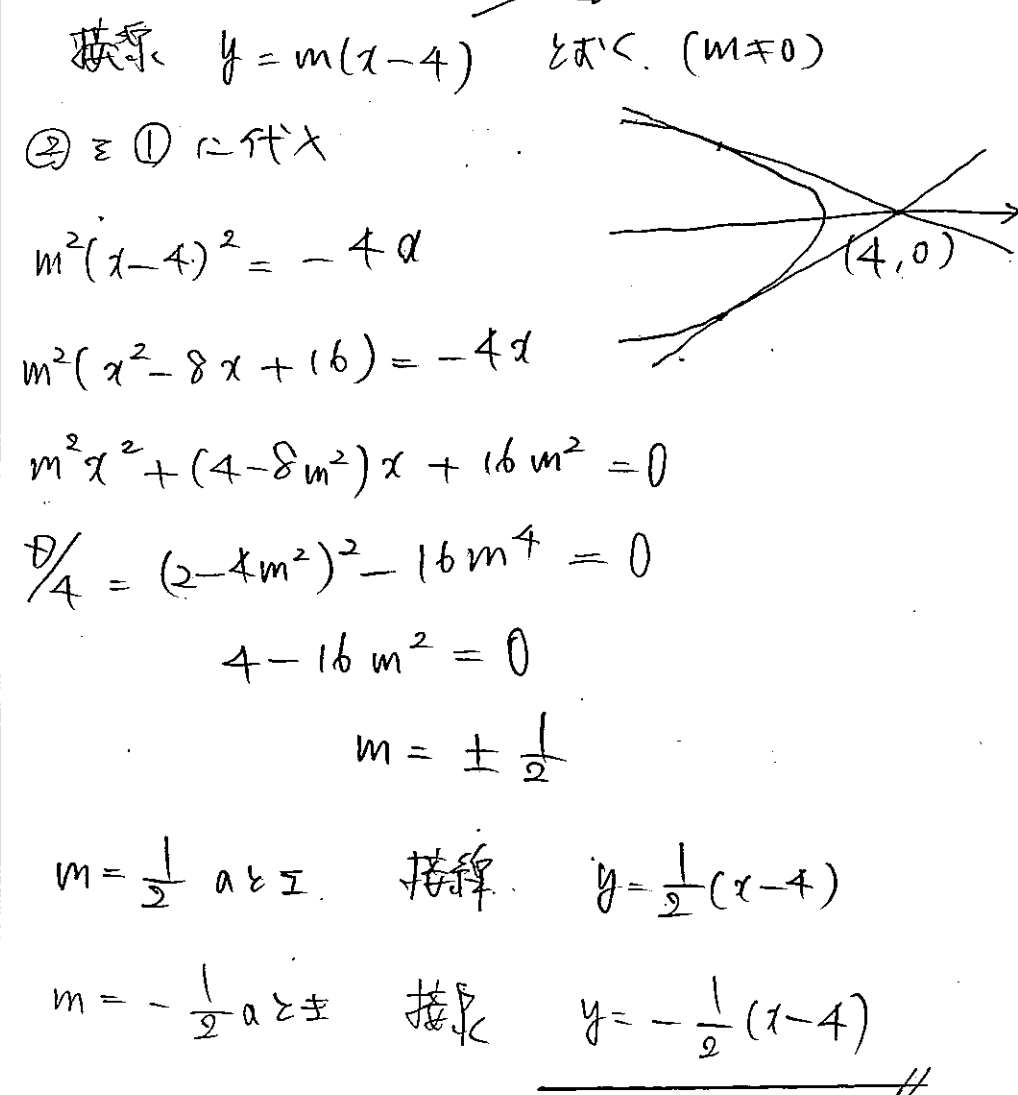 接線 y = m(x-4) とおく. (m≠0)
②を①に代入
(4,0)
m²(x-4)² = -4x
m²(x²-8x+16) = -4x
m²x²+(4-8m²)x+16m² = 0
D/4 = (2-4m²)²-16m⁴ = 0
4-16m² = 0
m = ± 1/2
m = 1/2 のとき. 接線. y = 1/2(x-4)
m = -1/2 のとき 接線 y = -1/2(x-4)